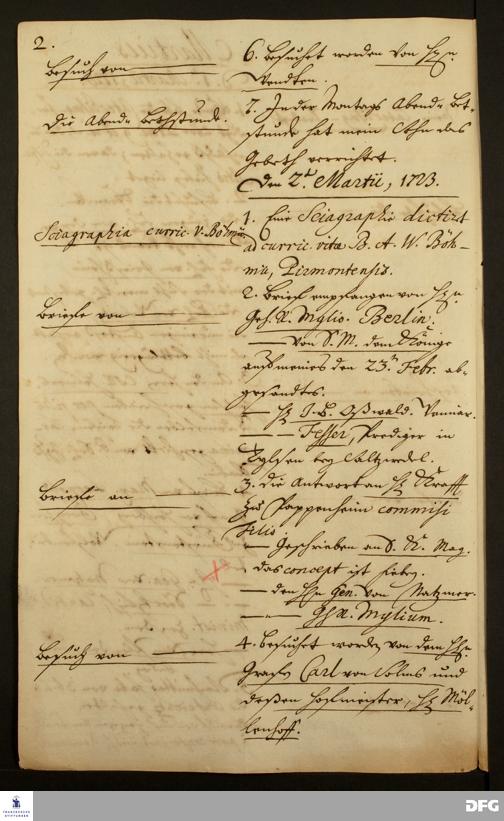 2.
Besuch von
6. Besuchet worden von H. n.
Die Abend-Bethstunde.
7. In der Montags Abend-Bet-
stunde hat mein Sohn das
Gebeth verrichtet.
Den 2ᵗ Martii, 1723.
Sciagraphia curric. V. Böhmii
1. Eine Sciagraphie dictirt
ad curric. vitæ B. A. W. Böh-
mii, Pirmontensis.
Briefe von
2. Brief empfangen von H. n.
Geh. R. Mylio. Berlin.
— von S. M. dem Könige
den 23ᵗ Febr. ab-
gesandtes.
— H. J. B. Oßwald.
— Prediger in
bey Saltzwedel.
Briefe an
3. Die Antwort an H. Krafft
zu Pappenheim commisi
Filio.
— Geschrieben an S. K. Maj.
das concept ist hiebey.
— den H. Gen. von Natzmer.
— Geh. R. Mylium.
Besuch von
4. Besuchet worden von dem H. n.
Grafen Carl von Solms und
deßen Hofmeister, H. Möl-
lenhoff.
FRANCKESCHE STIFTUNGEN
DFG